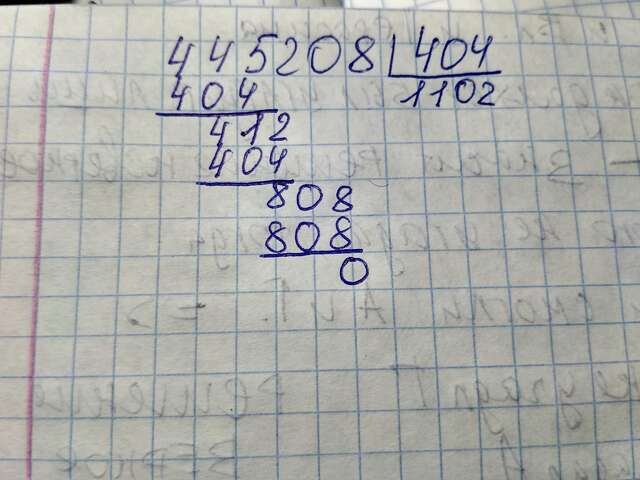 445208 404
404 1102
412
404
808
808
0